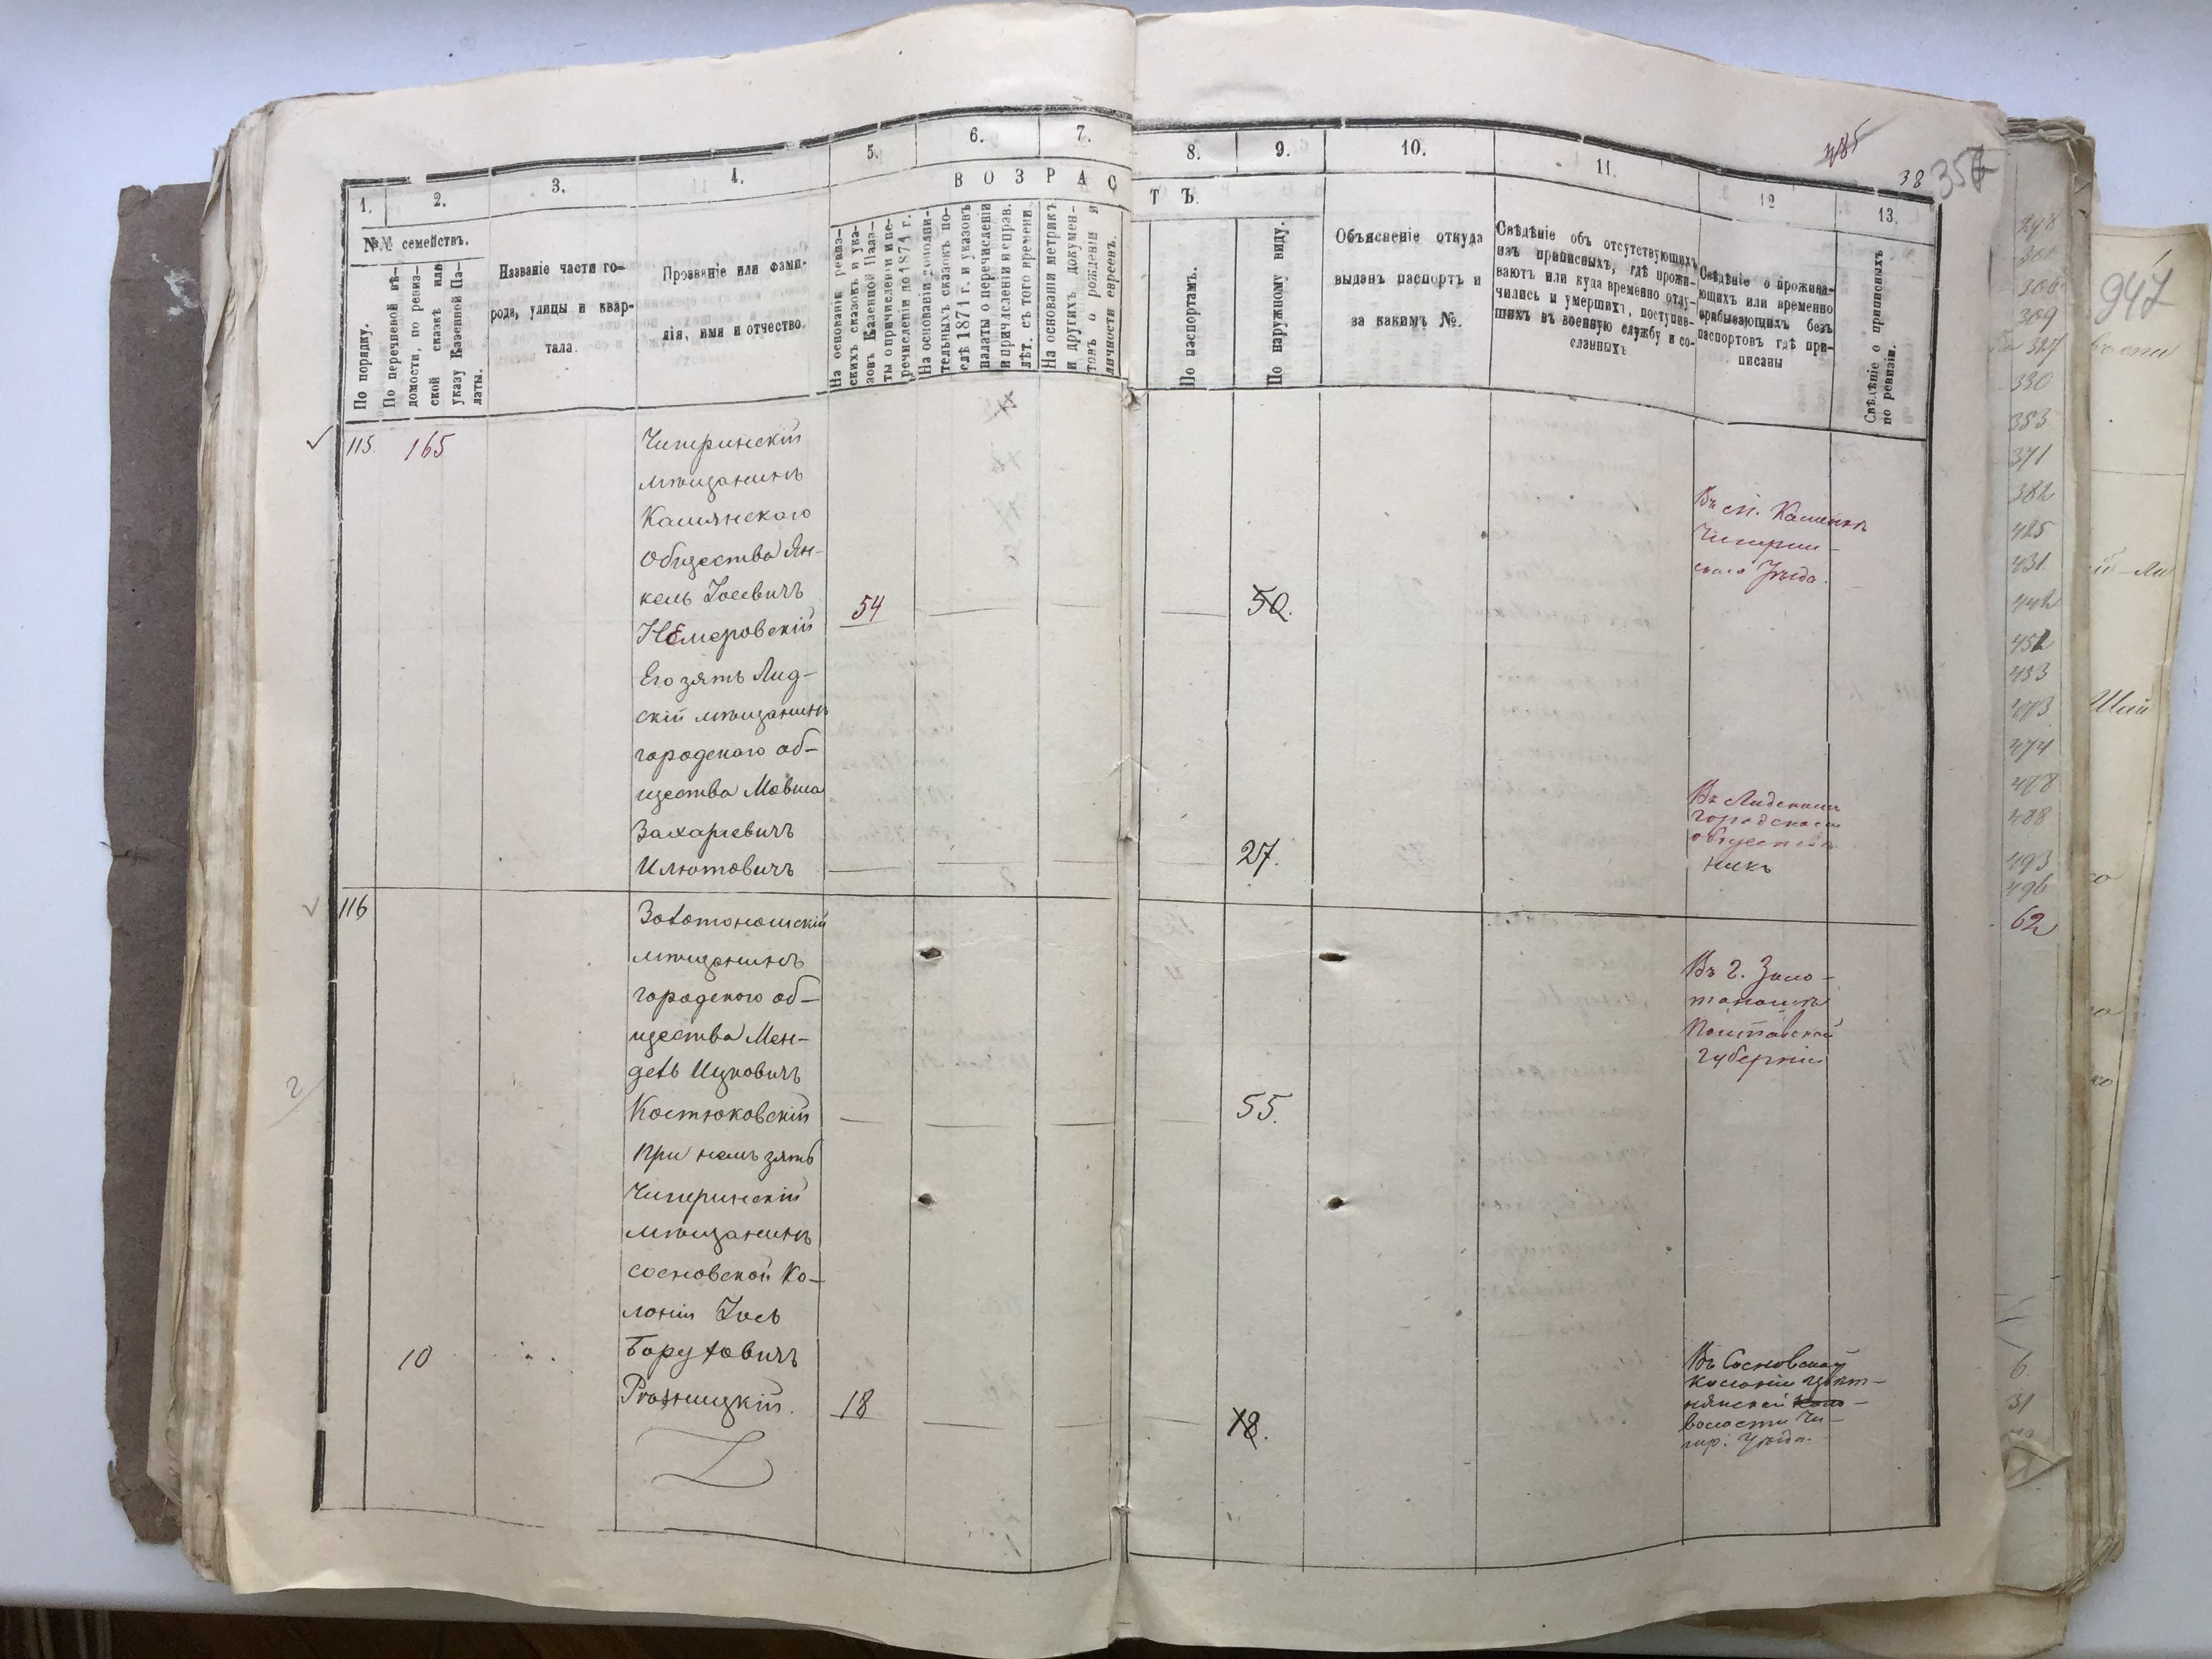 485
38
357
1.
2.
3.
4.
5.
6.
7.
8.
9.
10.
11.
12
13.
ВОЗРАС
ТЪ.
№№ семействъ.
По порядку.
По перечневой вѣ-
домости, по ревиз-
ской сказкѣ или
указу Казенной Па-
латы.
Названіе части го-
рода, улицы и квар-
тала.
Прозваніе или фами-
лія, имя и отчество.
На основаніи ревиз-
скихъ сказокъ и ука-
зовъ Казенной Пала-
ты о причисленіи и пе-
речисленіи по 1874 г.
На основаніи дополни-
тельныхъ сказокъ по-
слѣ 1874 г. и указовъ
палаты о перечисленіи
и причисленіи и справ.
лѣт. съ того времени.
На основаніи метрикъ
и другихъ докумен-
товъ о рожденіи и
личности евреевъ.
По паспортамъ.
По наружному виду.
Объясненіе откуда
выданъ паспортъ и
за какимъ №.
Свѣдѣніе объ отсутствующихъ
изъ приписныхъ, гдѣ прожи-
ваютъ или куда временно отлу-
чились и умершихъ, поступив-
шихъ въ военную службу и со-
сланныхъ
Свѣдѣніе о прожива-
ющихъ или временно
прибывающихъ безъ
паспортовъ гдѣ при-
писаны
Свѣдѣніе о приписныхъ
по ревизіи.
115.
165
Чигиринскій
мѣщанинъ
Камянского
общества Ян-
кель Іосевичъ
Немеровскій
54
50.
Въ м. Каменкѣ
Чигирин-
скаго Уѣзда.
Его зять Лид-
скій мѣщанинъ
городского об-
щества Мовша
Захаріевичъ
Илютовичъ
27.
Въ Лидскомъ
городскомъ
обществѣ
116
Золотоношскій
мѣщанинъ
городского об-
щества Мен-
дель Ицковичъ
Костюковскій
55.
Въ г. Золо-
тоношѣ
Полтавской
губерніи
При немъ зять
Чигиринскій
мѣщанинъ
Сосновской Ко-
лоніи Іось
Боруховичъ
10
18
18.
Въ Сосновской
колоніи
волости Чи-
гир. Уѣзда.
947
309
330
353
371
382
425
431
442
452
453
473
474
478
488
493
496
62
6
31